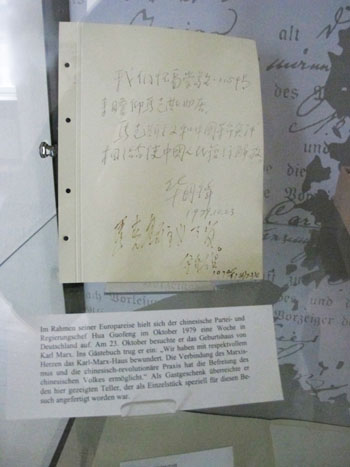 alt
我们怀着崇敬的心情
来瞻仰马克思的故居
马克思主义和中国革命实践
相结合使中国人民得到解放
华国锋
1979.10.23
Im Rahmen seiner Europareise hielt sich der chinesische Partei- und
Regierungschef Hua Guofeng im Oktober 1979 eine Woche in
Deutschland auf. Am 23. Oktober besuchte er das Geburtshaus von
Karl Marx. Ins Gästebuch trug er ein: „Wir haben mit respektvollem
Herzen das Karl-Marx-Haus bewundert. Die Verbindung des Marxis-
mus und die chinesisch-revolutionäre Praxis hat die Befreiung des
chinesischen Volkes ermöglicht.“ Als Gastgeschenk überreichte er
den hier gezeigten Teller, der als Einzelstück speziell für diesen Be-
such angefertigt worden war.